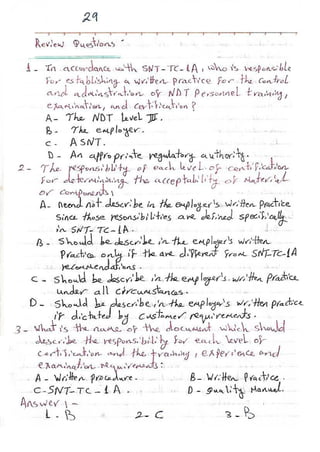 29
Review Questions
1- In accordance with SNT-TC-1A, who is responsible
for establishing a written practice for the control
and administration of NDT personnel training,
examination, and certification?
A- The NDT level III.
B- The employer.
C- ASNT.
D- An appropriate regulatory authority.
2- The responsiblity of each level of certification
for determining the acceptability of material
or components:
A- Need not describe in the employer's written practice
since those resonsibilities are defined specifically
in SNT-TC-1A.
B- Should be describe in the employer's written
practice only if the are different from SNT-TC-1A
recommendations.
C- Should be describe in the employer's written practice
under all circumstances.
D- Should be describe in the employer's written practice
if dictated by customer requirements.
3- What is the name of the document which should
describe the responsibility for each level of
certification and the training, experience and
examination requirements:
A- Written procedure. B- Written Practice.
C- SNT-TC-1A. D- Quality Manual.
Answer:-
1-B 2-C 3-B